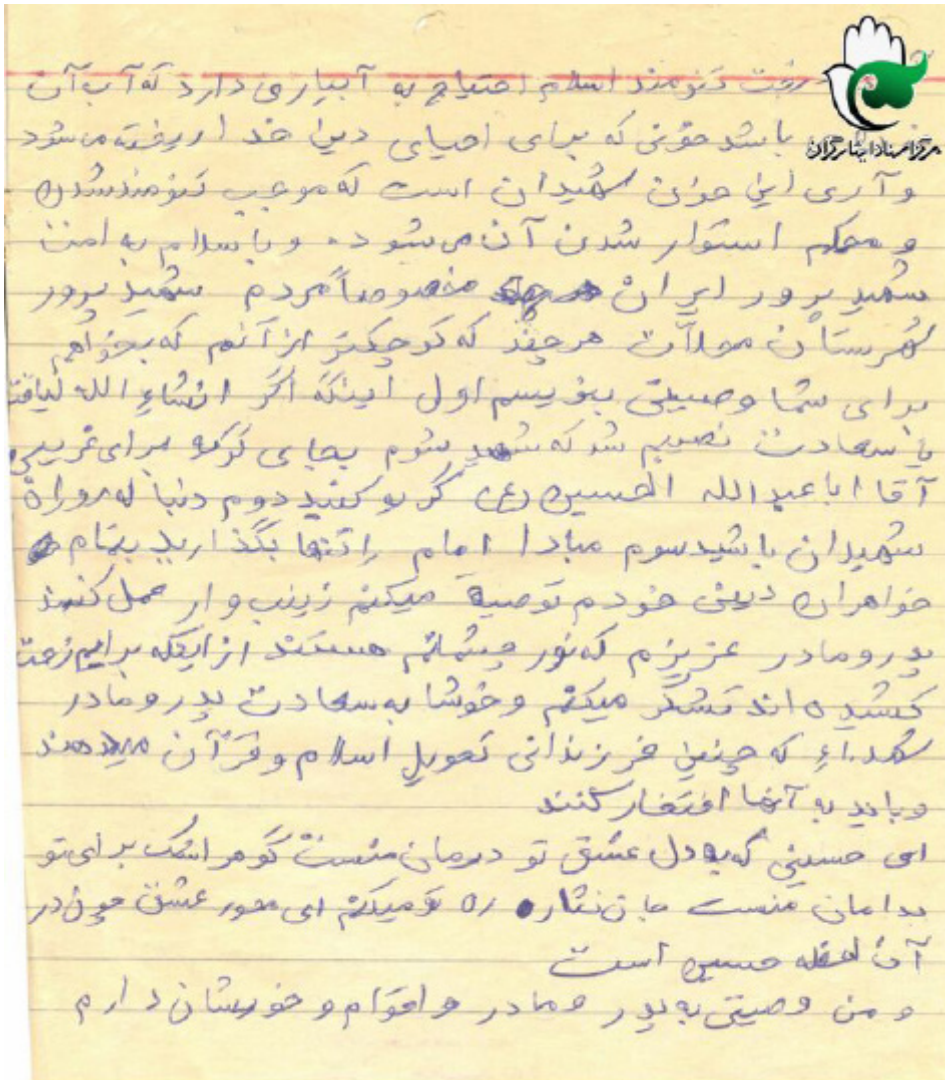 درخت تنومند اسلام احتیاج به آبیاری دارد که آب آن
باشد خونی که برای احیای دین خدا ریخته می شود
و آری این خون شهیدان است که موجب تنومند شدن
و محکم استوار شدن آن می شود. و با سلام به امت
شهید پرور ایران مخصوصاً مردم شهید پرور
شهرستان محلات هر چند که کوچکتر از آنم که بخواهم
برای شما وصیتی بنویسم اول اینکه اگر انشاءالله لیاقت
با سعادت نصیبم شد که شهید شوم بجای گریه برای غریبی
آقا ابا عبدالله الحسین (ع) گریه کنید دوم دنباله رو راه
شهیدان باشید سوم مبادا امام را تنها بگذارید بتمام
خواهران دینی خودم توصیه میکنم زینب وار عمل کنند
پدر و مادر عزیزم که نور چشمانم هستند از اینکه برایم زحمت
کشیده اند تشکر میکنم و خوشا به سعادت پدر و مادر
شهداء که چنین فرزندانی تحویل اسلام و قرآن میدهند
و باید به آنها افتخار کنند
ای حسینی که به دل عشق تو درمان منست گوهر اشک برای تو
بدامان منست جان نثار ره تو میکنم ای محور عشق چون در
آن لحظه حسین است
و من وصیتی به پدر و مادر و اقوام و خویشان دارم
مرکز اسناد ایثارگران